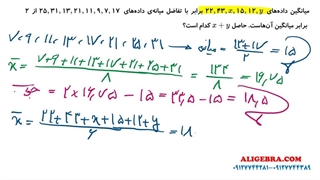 میانگین داده‌های ۲۲,۴۳,x,۱۵,۱۲,y برابر با تفاضل میانه‌ی داده‌های ۲۵,۳۱,۱۳,۲۱,۱۱,۹,۷,۱۷ از ۲
برابر میانگین آن‌هاست. حاصل x + y کدام است؟
۷, ۹, ۱۱, ۱۳, ۱۷, ۲۱, ۲۵, ۳۱ → میانه = (۱۳+۱۷)/۲ = ۱۵
x̄ = (۷+۹+۱۱+۱۳+۱۷+۲۱+۲۵+۳۱)/۸ = ۱۳۴/۸ = ۱۶,۷۵
= ۲×۱۶,۷۵ − ۱۵ = ۳۳,۵ − ۱۵ = ۱۸,۵
x̄ = (۲۲+۴۳+x+۱۵+۱۲+y)/۶ = ۱۸
ALIGEBRA.COM